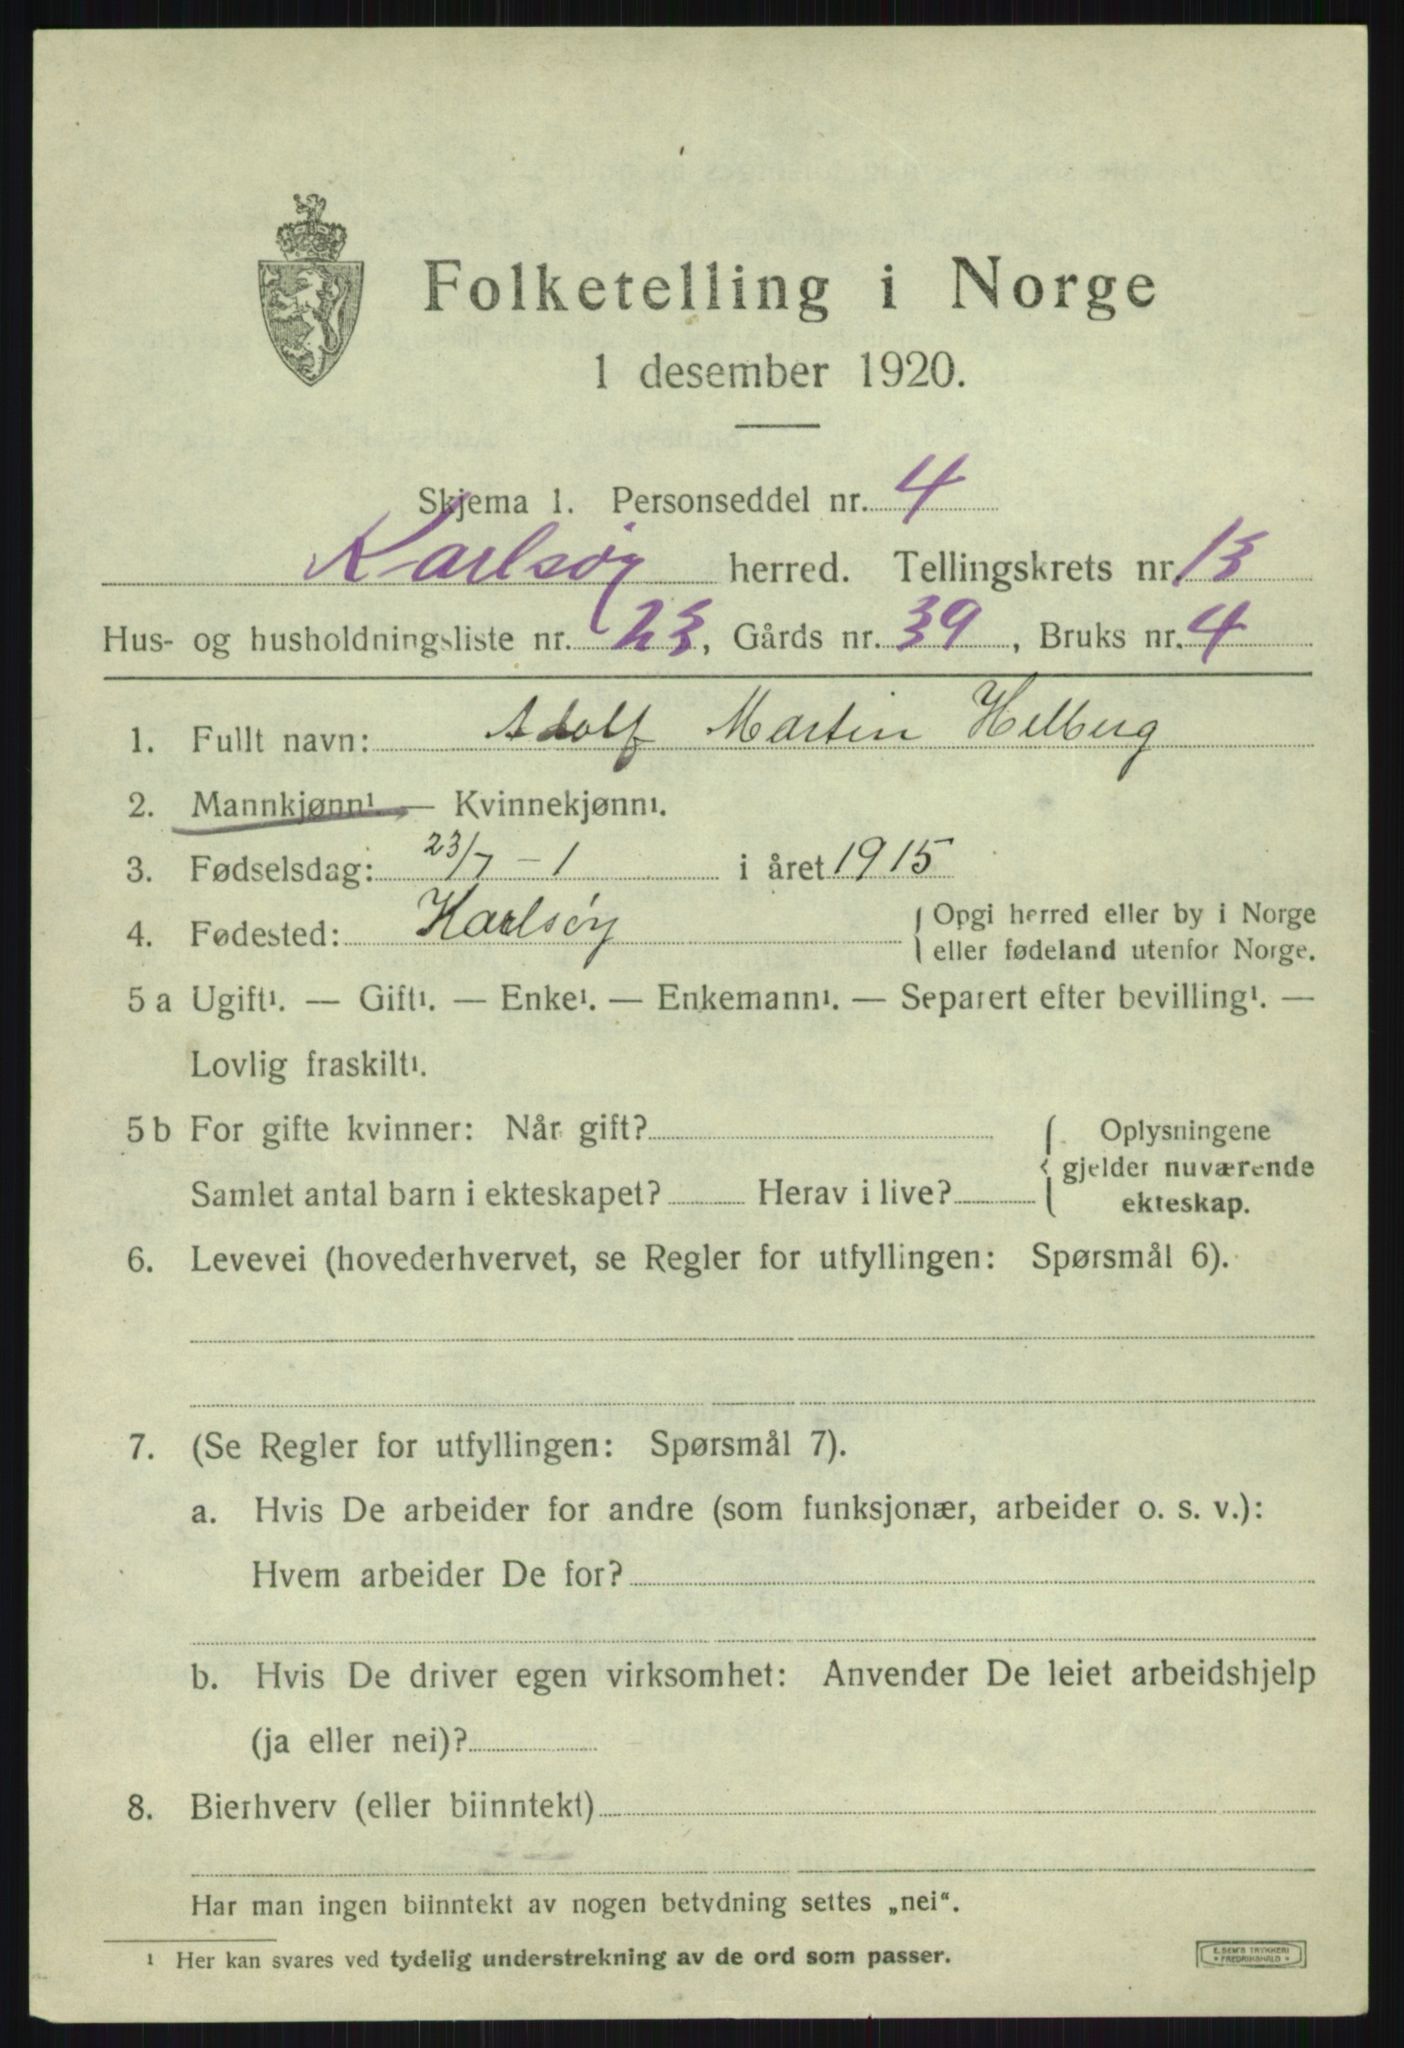 Folketelling i Norge
1 desember 1920.
Skjema 1. Personseddel nr. 4
Karlsøy herred. Tellingskrets nr. 13
Hus- og husholdningsliste nr. 23, Gårds nr. 39, Bruks nr. 4
1. Fullt navn: Adolf Martin Helberg
2. Mannkjønn¹ — Kvinnekjønn¹.
3. Fødselsdag: 23/7 - 1 i året 1915
4. Fødested: Karlsøy { Opgi herred eller by i Norge
eller fødeland utenfor Norge.
5 a Ugift¹. — Gift¹. — Enke¹. — Enkemann¹. — Separert efter bevilling¹. —
Lovlig fraskilt¹.
5 b For gifte kvinner: Når gift? { Oplysningene
gjelder nuværende
Samlet antal barn i ekteskapet? Herav i live? ekteskap.
6. Levevei (hovederhvervet, se Regler for utfyllingen: Spørsmål 6).
7. (Se Regler for utfyllingen: Spørsmål 7).
a. Hvis De arbeider for andre (som funksjonær, arbeider o. s. v.):
Hvem arbeider De for?
b. Hvis De driver egen virksomhet: Anvender De leiet arbeidshjelp
(ja eller nei)?
8. Bierhverv (eller biinntekt)
Har man ingen biinntekt av nogen betydning settes „nei“.
¹ Her kan svares ved tydelig understrekning av de ord som passer.
E. SEM'S TRYKKERI
FREDRIKSHALD